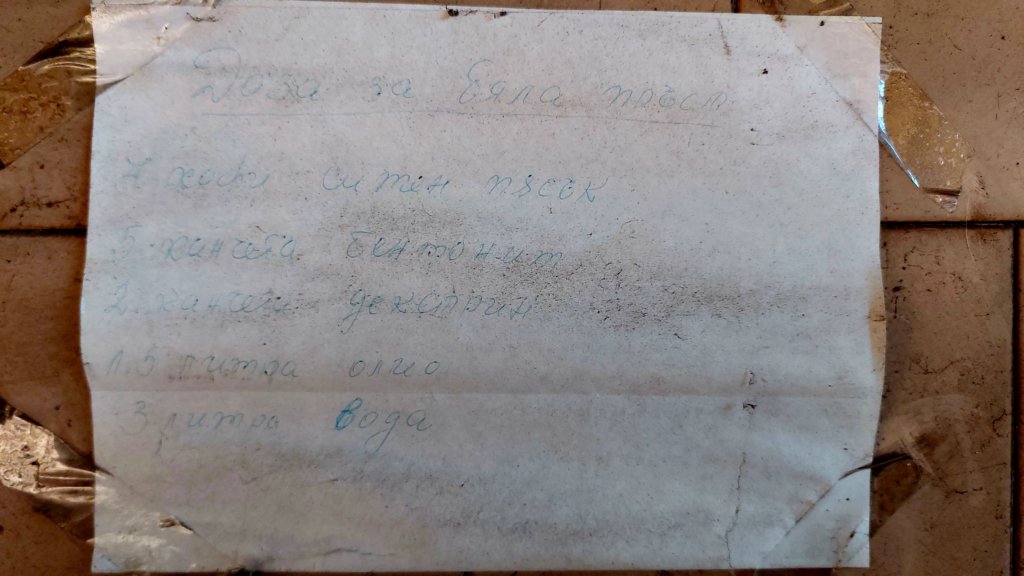 Доза за бяла пръст
7 кофи ситен пясък
5 канчета бентонит
2. канчета декстрин
1.5 литра олио
3 литра вода